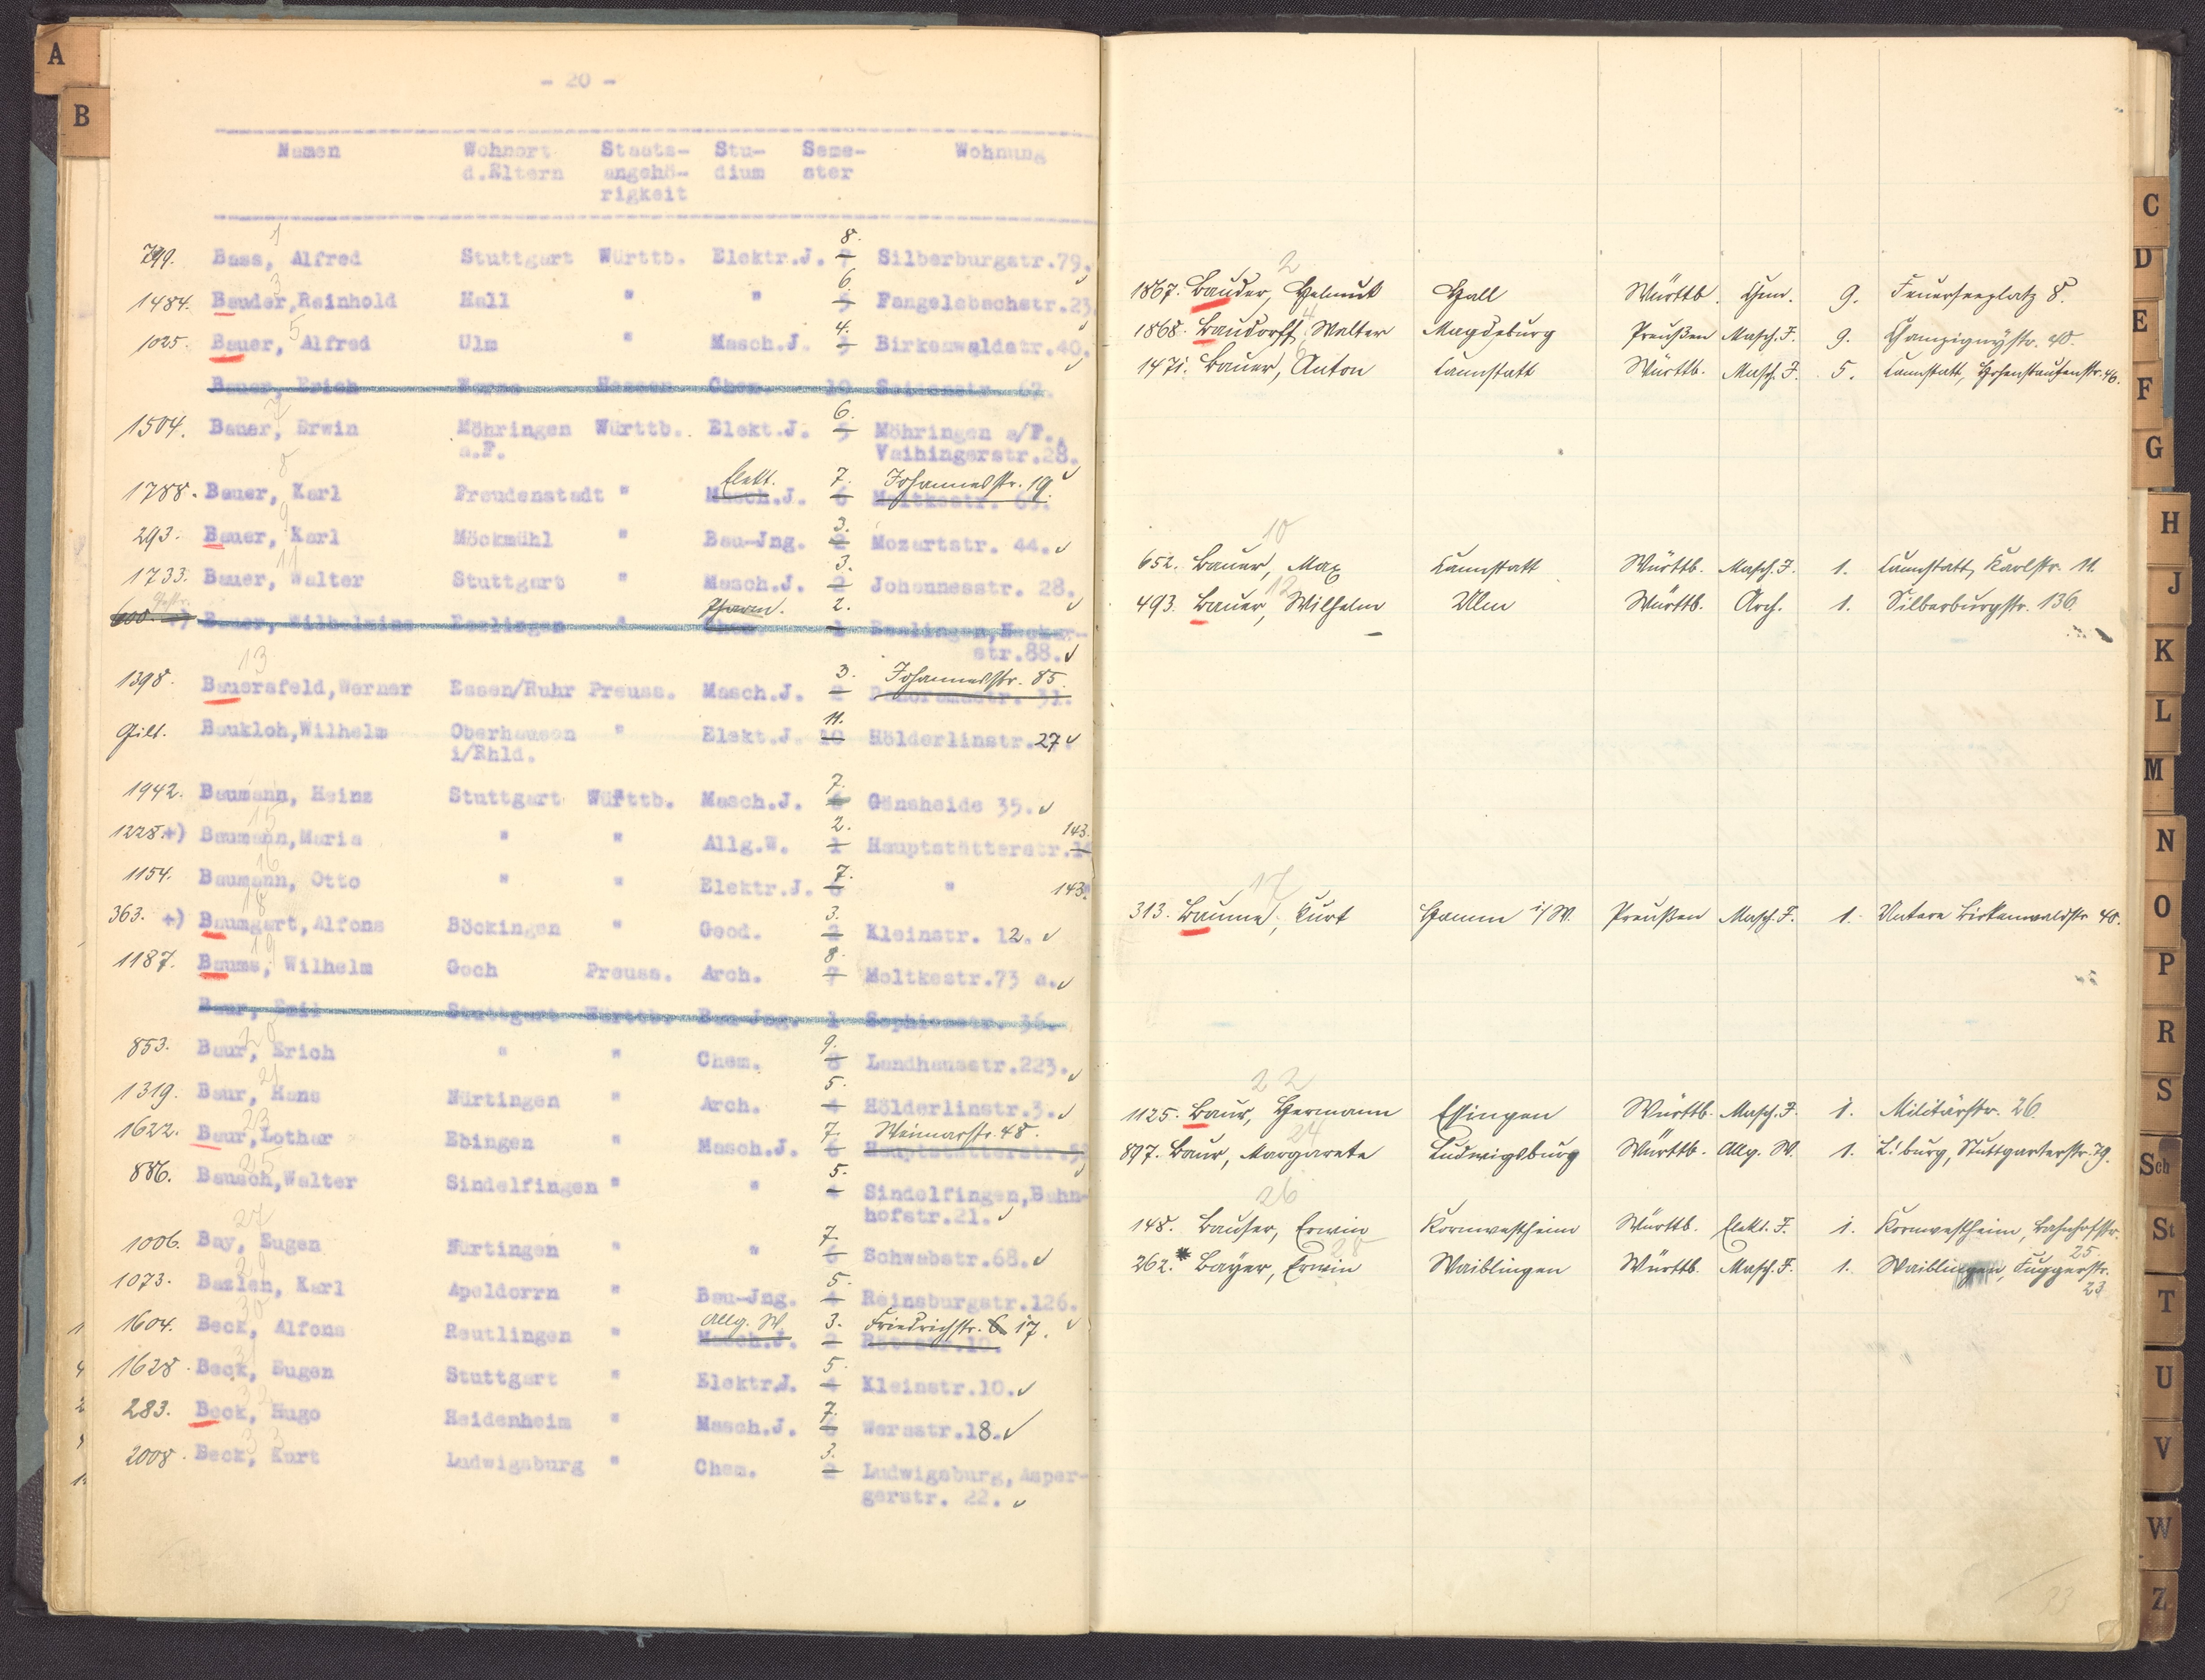 A
B
- 20 -
Namen Wohnort Staats- Stu- Seme- Wohnung
d.Eltern angehö- dium ster
rigkeit
1
799. Bass, Alfred Stuttgart Württb. Elektr.J. 7 8. Silberburgstr.79.
3
1484. Bauder,Reinhold Hall " " 5 6. Fangelsbachstr.23.
5
1025. Bauer, Alfred Ulm " Masch.J. 3 4. Birkenwaldstr.40.
Bauer, Erich Hessen Chem. 10 62.
7
1504. Bauer, Erwin Möhringen Württb. Elekt.J. 5 6. Möhringen a/F.,
a.F. Vaihingerstr.28.
8 Elekt. 7. Johannesstr. 19.
1788. Bauer, Karl Freudenstadt " Masch.J. 6 Moltkestr. 69.
9
293. Bauer, Karl Möckmühl " Bau-Jng. 2 3. Mozartstr. 44.
11
1733. Bauer, Walter Stuttgart " Masch.J. 2 3. Johannesstr. 28.
Pharm. 2.
600. +) Bauer, Wilhelmine Esslingen " Chem. 1 Esslingen,Neckar-
str.88.
13 3. Johannesstr. 85.
1398. Bauersfeld,Werner Essen/Ruhr Preuss. Masch.J. 2 Panoramastr. 31.
Gilt. Baukloh,Wilhelm Oberhausen " Elekt.J. 10 11. Hölderlinstr.27.
i/Rhld.
1942. Baumann, Heinz Stuttgart Württb. Masch.J. 7. Gänsheide 35.
15
1228.+) Baumann,Maria " " Allg.W. 1 2. Hauptstätterstr. 143.
16
1154. Baumann, Otto " " Elektr.J. 6 7. " 143.
18
363. +) Baumgart, Alfons Böckingen " Geod. 2 3. Kleinstr. 12.
19
1187. Baums, Wilhelm Goch Preuss. Arch. 7 8. Moltkestr.73 a.
Baur, Emil Stuttgart Württb. Bau-Jng. 1 Sophienstr. 36.
20
853. Baur, Erich " " Chem. 8 9. Landhausstr.223.
21
1319. Baur, Hans Nürtingen " Arch. 4 5. Hölderlinstr.3.
23 7. Weimarstr. 48.
1622. Baur,Lothar Ebingen " Masch.J. 6 Hauptstätterstr.
25
886. Bausch,Walter Sindelfingen " " 4 5. Sindelfingen,Bahn-
hofstr.21.
27
1006. Bay, Eugen Nürtingen " " 6 7. Schwabstr.68.
29
1073. Bazlen, Karl Apeldorrn " Bau-Jng. 4 5. Reinsburgstr.126.
30 Allg. W. 3. Friedrichstr. 6 17.
1604. Beck, Alfons Reutlingen " Masch.J. 2
31
1628. Beck, Eugen Stuttgart " Elektr.J. 4 5. Kleinstr.10.
32
283. Beck, Hugo Heidenheim " Masch.J. 6 7. Werastr.18.
33
2008. Beck, Kurt Ludwigsburg " Chem. 2 3. Ludwigsburg, Asper-
gerstr. 22.
2
1867. Bauder, Helmut Hall Württb. Chem. 9. Feuerseeplatz 8.
4
1868. Baudorff, Walter Magdeburg Preußen Masch.J. 9. Champignystr. 40.
6
1471. Bauer, Anton Cannstatt Württb. Masch.J. 5. Cannstatt, Hohenstaufenstr.46.
10
652. Bauer, Max Cannstatt Württb. Masch.J. 1. Cannstatt, Karlstr. 11.
12
493. Bauer, Wilhelm Ulm Württb. Arch. 1. Silberburgstr. 136.
17
313. Baume, Kurt Hamm i/W. Preußen Masch.J. 1. Untere Birkenwaldstr. 40.
22
1125. Baur, Hermann Essingen Württb. Masch.J. 1. Militärstr. 26.
24
897. Baur, Margarete Ludwigsburg Württb. Allg. W. 1. L.'burg, Stuttgarterstr. 79.
26
148. Bauser, Erwin Kornwestheim Württb. Elekt. J. 1. Kornwestheim, Bahnhofstr.
25.
28
262.* Bayer, Erwin Waiblingen Württb. Masch.J. 1. Waiblingen, Fuggerstr.
23
33
C
D
E
F
G
H
J
K
L
M
N
O
P
R
S
Sch
St
T
U
V
W
Z